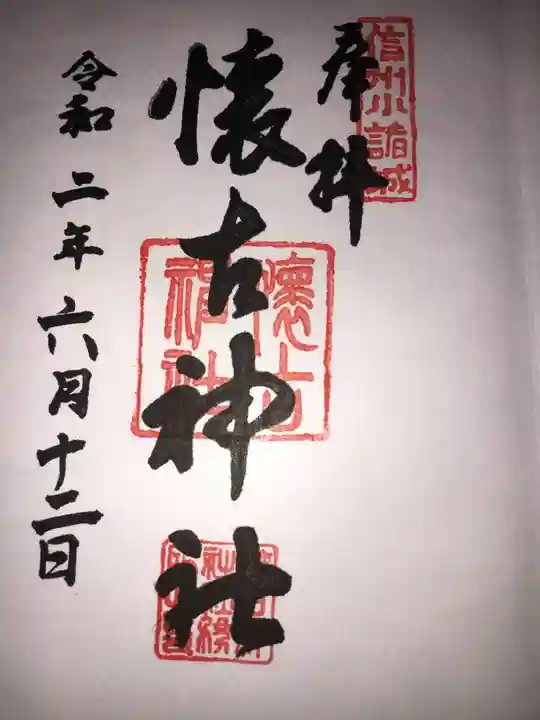 信州小諸城
奉拝
懐古神社
懐古神社
令和二年六月十二日